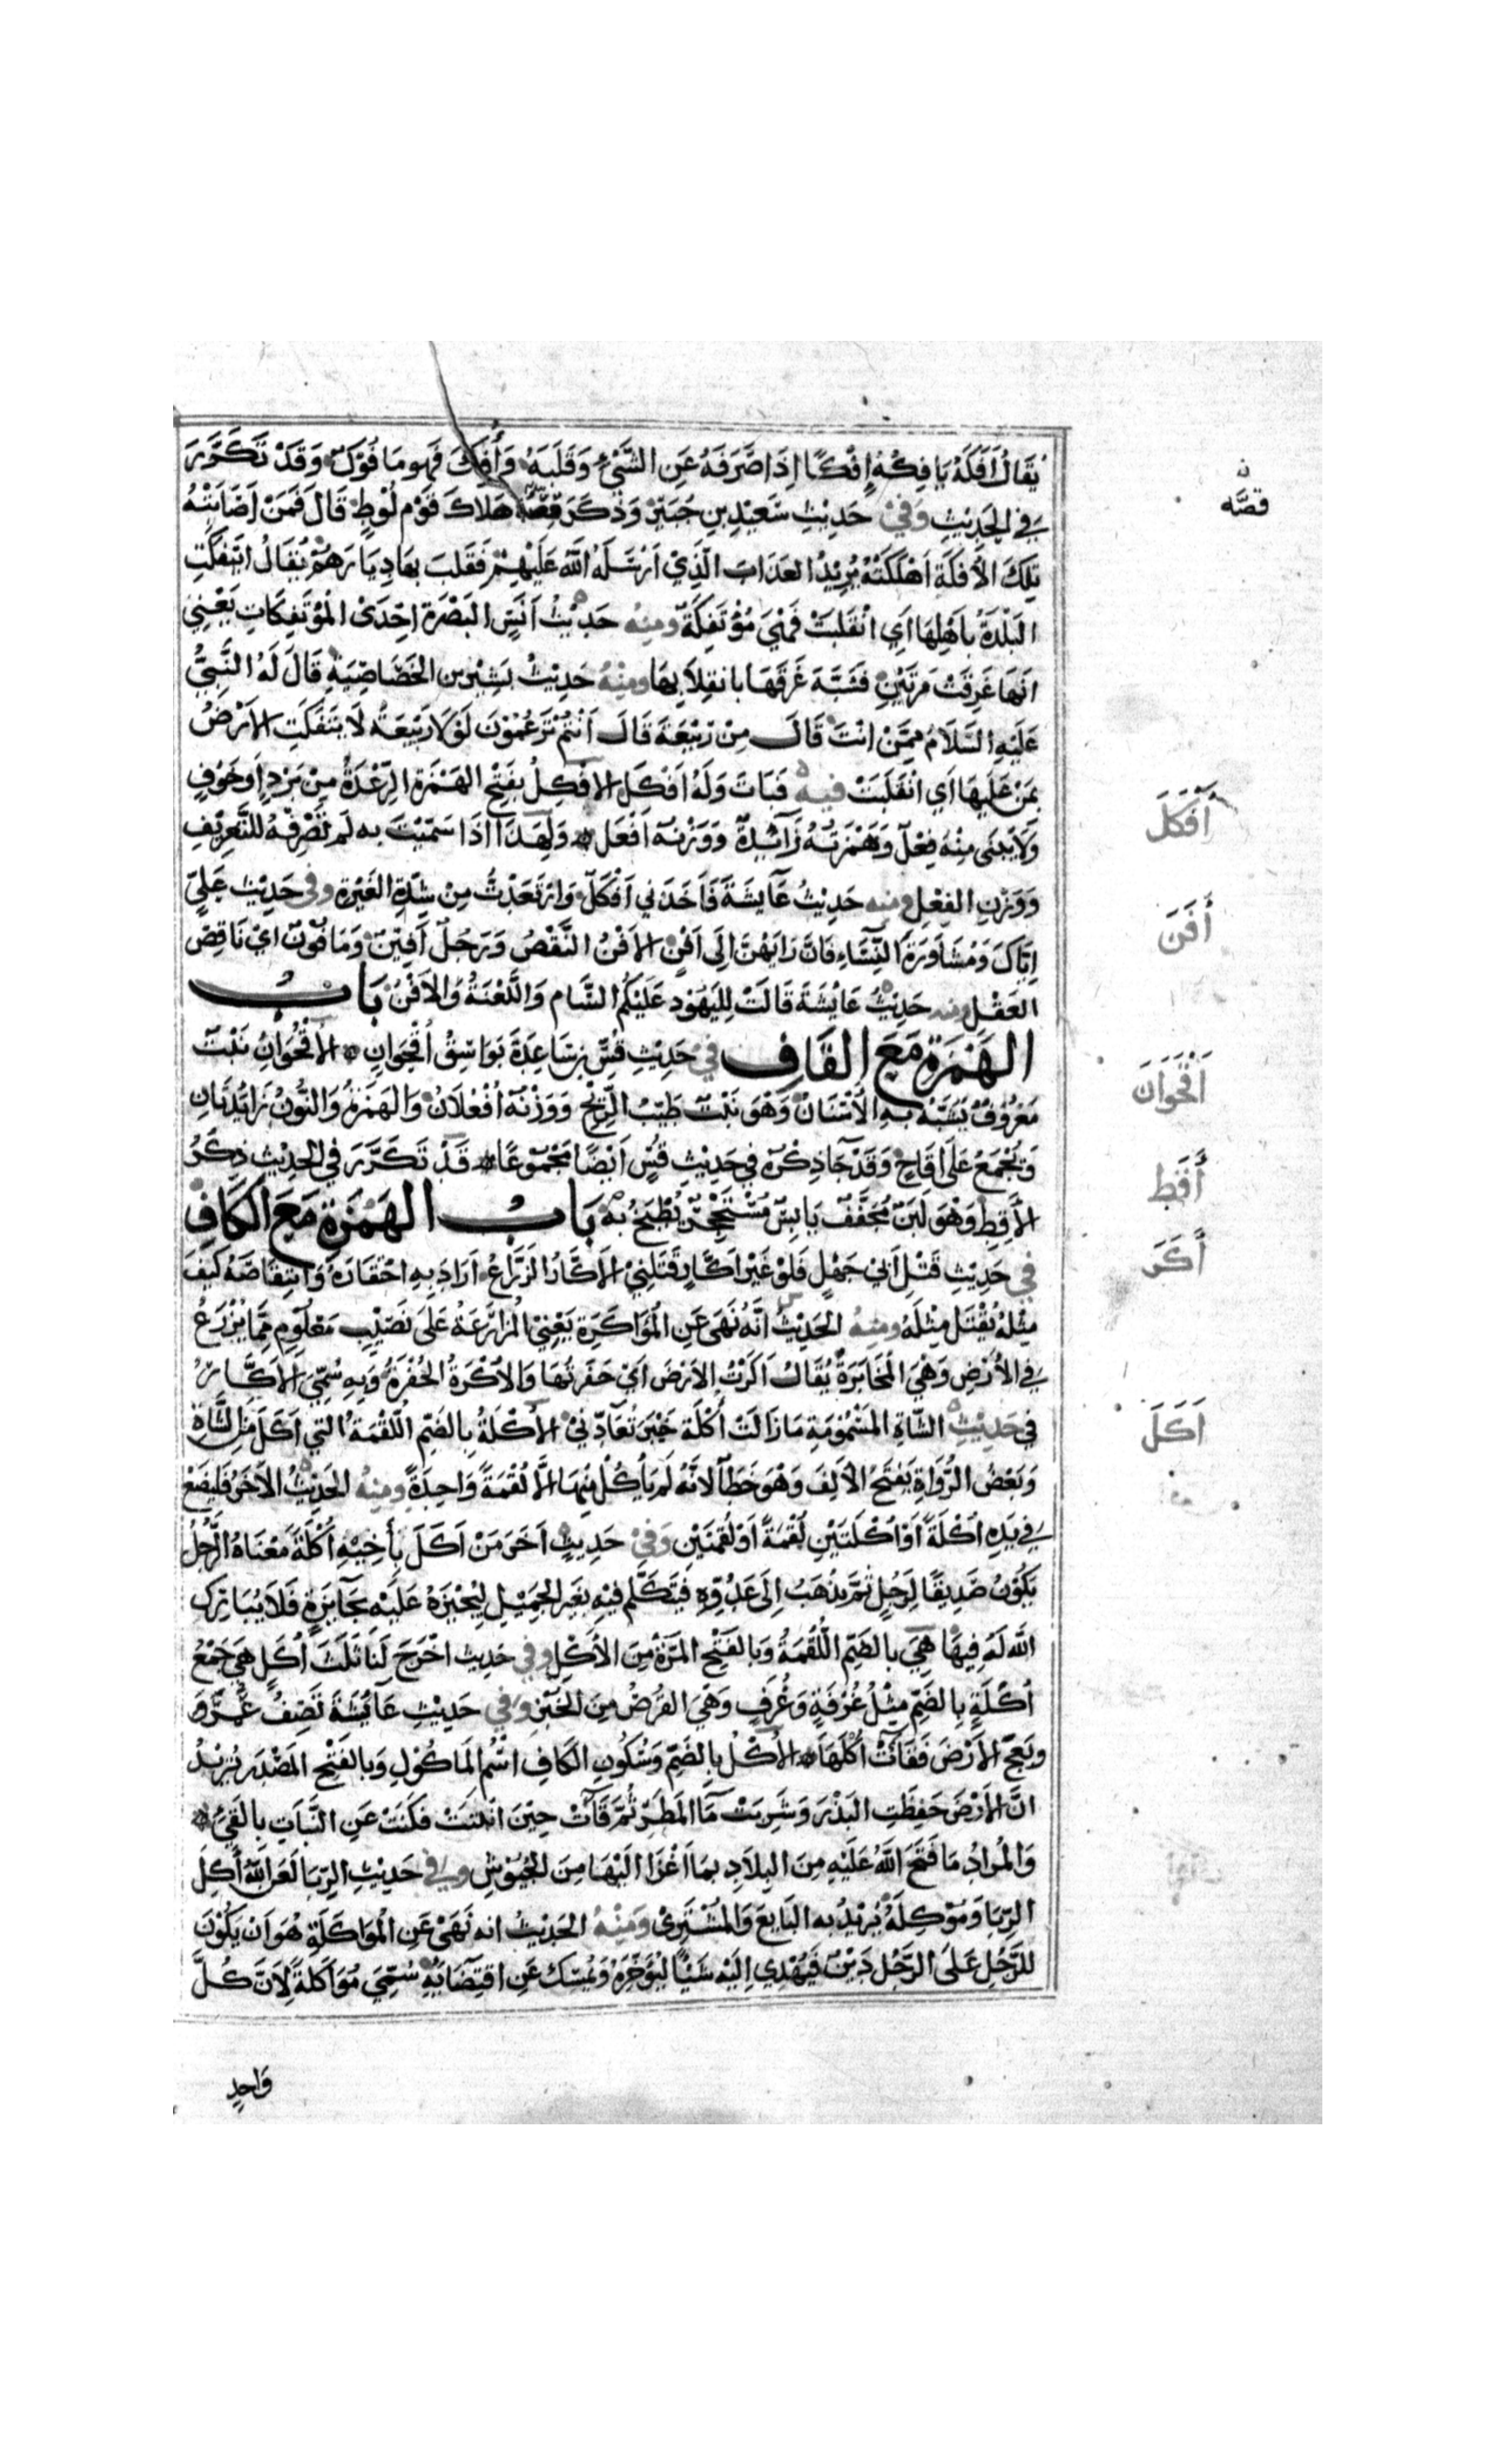 يُقَالُ اَفَكَهُ يَافِكُهُ اِفْكًا اِذَا صَرَفَهُ عَنِ الشَّيْءِ وَقَلَبَهُ وَاُفِكَ فَهو مَا فُوْكٌ وَقَدْ تَكَرَّرَ
فِي الْحَدِيْثِ وَفِيْ حَدِيْثِ سَعِيْدِ بنِ جُبَيْرٍ وَذَكَرَ قِصَّةَ هَلَاكَ قَوْمِ لُوْطٍ قَالَ فَمَنْ اَصَابَتْهُ
تِلْكَ الأَفْكَةِ اَهْلَكَتْهُ يُرِيْدُ العَذَابَ الَّذِيْ اَرْسَلَهُ اللهُ عَلَيْهِمْ فَقَلَبَ بِهَا دِيَارَهُمْ يُقَالُ ائْتَفَكَتِ
البَلْدَةُ بِاَهْلِهَا اَيِ انْقَلَبَتْ فَهْيَ مُؤْتَفِكَةٌ ومِنْهُ حَدِيْثُ اَنَسٍ البَصْرَةُ اِحْدَى الْمُؤْتَفِكَاتِ يَعْنِيْ
اَنَّهَا غَرِقَتْ مَرَّتَيْنِ فَشَبَّهَ غَرَقَهَا بِانقِلَابِهَا ومِنْهُ حَدِيْثُ بَشِيْرِ بن الخَصَاصِيَةِ قَالَ لَهُ النَّبِيُّ
عَلَيْهِ السَّلَامُ مِمَّنْ اَنْتَ قَالَ مِنْ رَبِيْعَةَ قَالَ اَنْتُمْ تَزْعُمُوْنَ لَوْلَا رَبِيْعَةُ لَا ئْتَفَكَتِ الأَرْضُ
بِمَنْ عَلَيْهَا اَيِ انْقَلَبَتْ فِيهِ فَبَاتَ وَلَهُ اَفْكَل الافْكِلُ بِفَتْحِ الهَمْزَةِ الرِّعْدَةُ مِنْ بَرْدٍ اَو خَوْفٍ
وَلَا يُبنَى مِنْهُ فِعْلٌ وَهَمْزَتُهُ زَائِدَةٌ وَوَزْنُهُ اَفْعَل وَلِهَذَا اِذَا سَمَّيْتَ بِهِ لَمْ تَصْرِفْهُ لِلتَّعْرِيْفِ
وَوَزْنِ الفِعْلِ ومِنه حَدِيْثُ عَايِشَةَ فَاَخَذَنِي اَفْكَلٌ وَارْتَعَدْتُ مِنْ شِدَّةِ الغَيْرَةِ وفِي حَدِيْثِ عَلِيٍّ
اِيَّاكَ وَمُشَاوَرَةَ النِّسَاءِ فَاِنَّ رَايَهُنَّ اِلَى اَفْنٍ الاَفْنُ النَّقْصُ وَرَجُلٌ اَفِيْنٌ وَمَا فُوْنٌ اَيْ نَاقِصُ
العَقْلِ ومِنه حَدِيْثُ عَايُشَةَ قَالَتْ لِلْيَهُوْدِ عَلَيْكُمُ السَّام وَاللَّعْنَةُ وَالأَفْنُ بَابُ
الهَمْزَةِ مَعَ القَافِ فِيْ حَدِيْثِ قُسِّ بنِ سَاعِدَةَ بَوَاسِقُ اُقْحُوَانٍ الأُقْحُوَانُ نَبْتٌ
مَعْرُوفٌ يُشَبَّهُ بِهِ الأَسْنَانُ وَهْوَ نَبْتٌ طَيِّبُ الرِّيْحِ وَوَزْنُهُ اُفْعُلَانُ وَالهَمْزَةُ وَالنُّوْنُ زَايِدَتَانِ
وَيُجْمَعُ عَلَى اَقَاحٍ وَقَدْ جَا ذِكْرُهُ فِي حَدِيْثِ قُسٍّ اَيْضًا مَجْمُوعًا قَدْ تَكَرَّرَ فِي الحَدِيْثِ ذِكْرُ
الأَقِطِ وَهْوَ لَبَنٌ مُجَفَّفٌ يَابِسٌ مُسْتَحْجِرٌ يُطْبَخُ بِهِ بَابُ الهَمْزَةِ مَعَ الكَافِ
فِي حَدِيْثِ قَتْلِ اَبِيْ جَهْلٍ فَلَوْ غَيْرُ اَكَّارٍ قَتَلَنِيْ الأَكَّارُ الزَّرَّاعُ اَرَادَ بِهِ احْتِقَارَهُ وَانْتِقَاصَهُ كَيْفَ
مِثْلُهُ يُقْتَل مِثْلَهُ ومِنْهُ الحَدِيْثُ اَنَّهُ نَهَى عَنِ الْمُؤَاكَرَةِ يَعْنِيْ الْمُزَارَعَةَ عَلَى نَصِيْبٍ مَعْلُوْمٍ مِمَّا يُزْرَعُ
فِي الأَرْضِ وَهْيَ الْمُخَابَرَةُ يُقَالُ اَكَرْتُ الأَرْضَ اَيْ حَفَرْتُهَا وَالأُكْرَةُ الحُفْرَةُ وَبِهِ سُمِّيَ الأَكَّارُ
فِي حَدِيْثِ الشَّاةِ المَسْمُوْمَةِ مَا زَالَتْ اُكْلَةُ خَيْبَرَ تُعَادُّنِيْ الأُكْلَةُ بِالضَّمِّ اللُّقْمَةُ التِي اَكَلَ مِنَ الشَّاةِ
وَبَعْضُ الرُّوَاةِ يَفْتَحُ الأَلِفَ وَهْوَ خَطَأٌ لاَنَّهُ لَمْ يَأْكُلْ مِنْهَا اِلَّا لُقْمَةً وَاحِدَةً ومِنْهُ الحَدِيْثُ الأَخَرُ فَلْيَضَعْ
فِي يَدِهِ اُكْلَةً اَوْ اُكْلَتَيْنِ لُقْمَةً اَوْ لُقْمَتَيْنِ وَفِيْ حَدِيْثٍ اَخَرَ مَنْ اَكَلَ بِأَخِيْهِ اُكْلَةً مَعْنَاهُ الرَّجُلُ
يَكُوْنُ صَدِيْقًا لِرَجُلٍ ثُمَّ يَذْهَبُ اِلَى عَدُوِّهِ فَيَتَكَلَّم فِيْهِ بِغَيْرِ الجَمِيْلِ لِيُجِيْزَهُ عَلَيْهِ بِجَائِزَةٍ فَلَا يُبَارِكُ
اللهُ لَهُ فِيهَا هِيَ بِالضَّمِّ اللُّقْمَةُ وَبِالفَتْحِ المَرَّةُ مِنَ الأَكْلِ وفِي حَدِيث اخْرَجَ لَنَا ثَلَثَ اُكَلٍ هِيَ جَمْعُ
اُكْلَةٍ بِالضَّمِّ مِثْلُ غُرْفَةٍ وَغُرَفٍ وَهْيَ القُرْصُ مِنَ الخُبْزِ وَفِي حَدِيْثِ عَايُشَةَ تَصِفُ عُمَرَ
وبَعَجَ الأَرْضَ فَقَاءَتْ اُكْلَهَا الأُكْلُ بِالضَّمِّ وَسُكُوْنِ الكَافِ اسْمُ المَاكُوْلِ وَبِالفَتْحِ المَصْدَر يُرِيْدُ
اَنَّ الأَرْضَ حَفِظَتِ البَذْرَ وَشَرِبَتْ مَآ المَطَرِ ثُمَّ قَآتْ حِيْنَ انْبَتَتْ فكَنَتْ عَنِ النَّبَاتِ بِالقَيْءِ
وَالْمُرادُ مَا فَتَحَ اللهُ عَلَيْهِ مِنَ البِلَادِ بِمَا اَغْزَا اِلَيْهَا مِنَ الجُيُوْشِ وفِي حَدِيْثِ الرِّبَا لَعَنَ اللهُ آكِلَ
الرِّبَا وَمُوْكِلَهُ يُرِيْدُ بِهِ البَايِعَ وَالْمُشْتَرِيْ وَمِنْهُ الحَدِيْثُ انه نَهَى عَنِ الْمُوَاكَلَةِ هُوَ اَنْ يَكُوْنَ
لِلرَّجُلِ عَلَى الرَّجُلِ دَيْنٌ فَيُهْدِي اِلَيْهِ شَيْئًا لِيُؤَخِّرَهُ وَيُمْسِكَ عَنِ اقْتِضَايِهِ سُمِّيَ مُوَاكَلَةً لِاَنَّ كُلَّ
وَاحِدٍ
ن
قصَّه
أَفْكَلَ
أَفَنَ
اَقْحَوَانَ
أَقَطِ
أَكَرَ
اَكَلَ